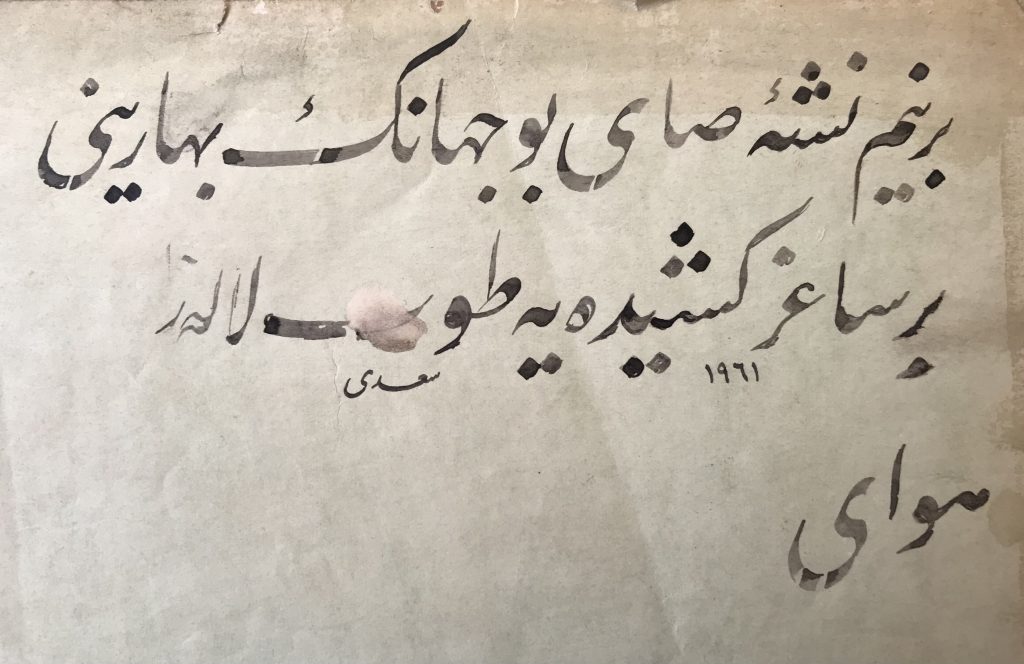 برنیم نشئه صای بو جهانك بهارینی
برساغر کشیده یه طوت لاله زا
١٩٦١ سعدی
هوای